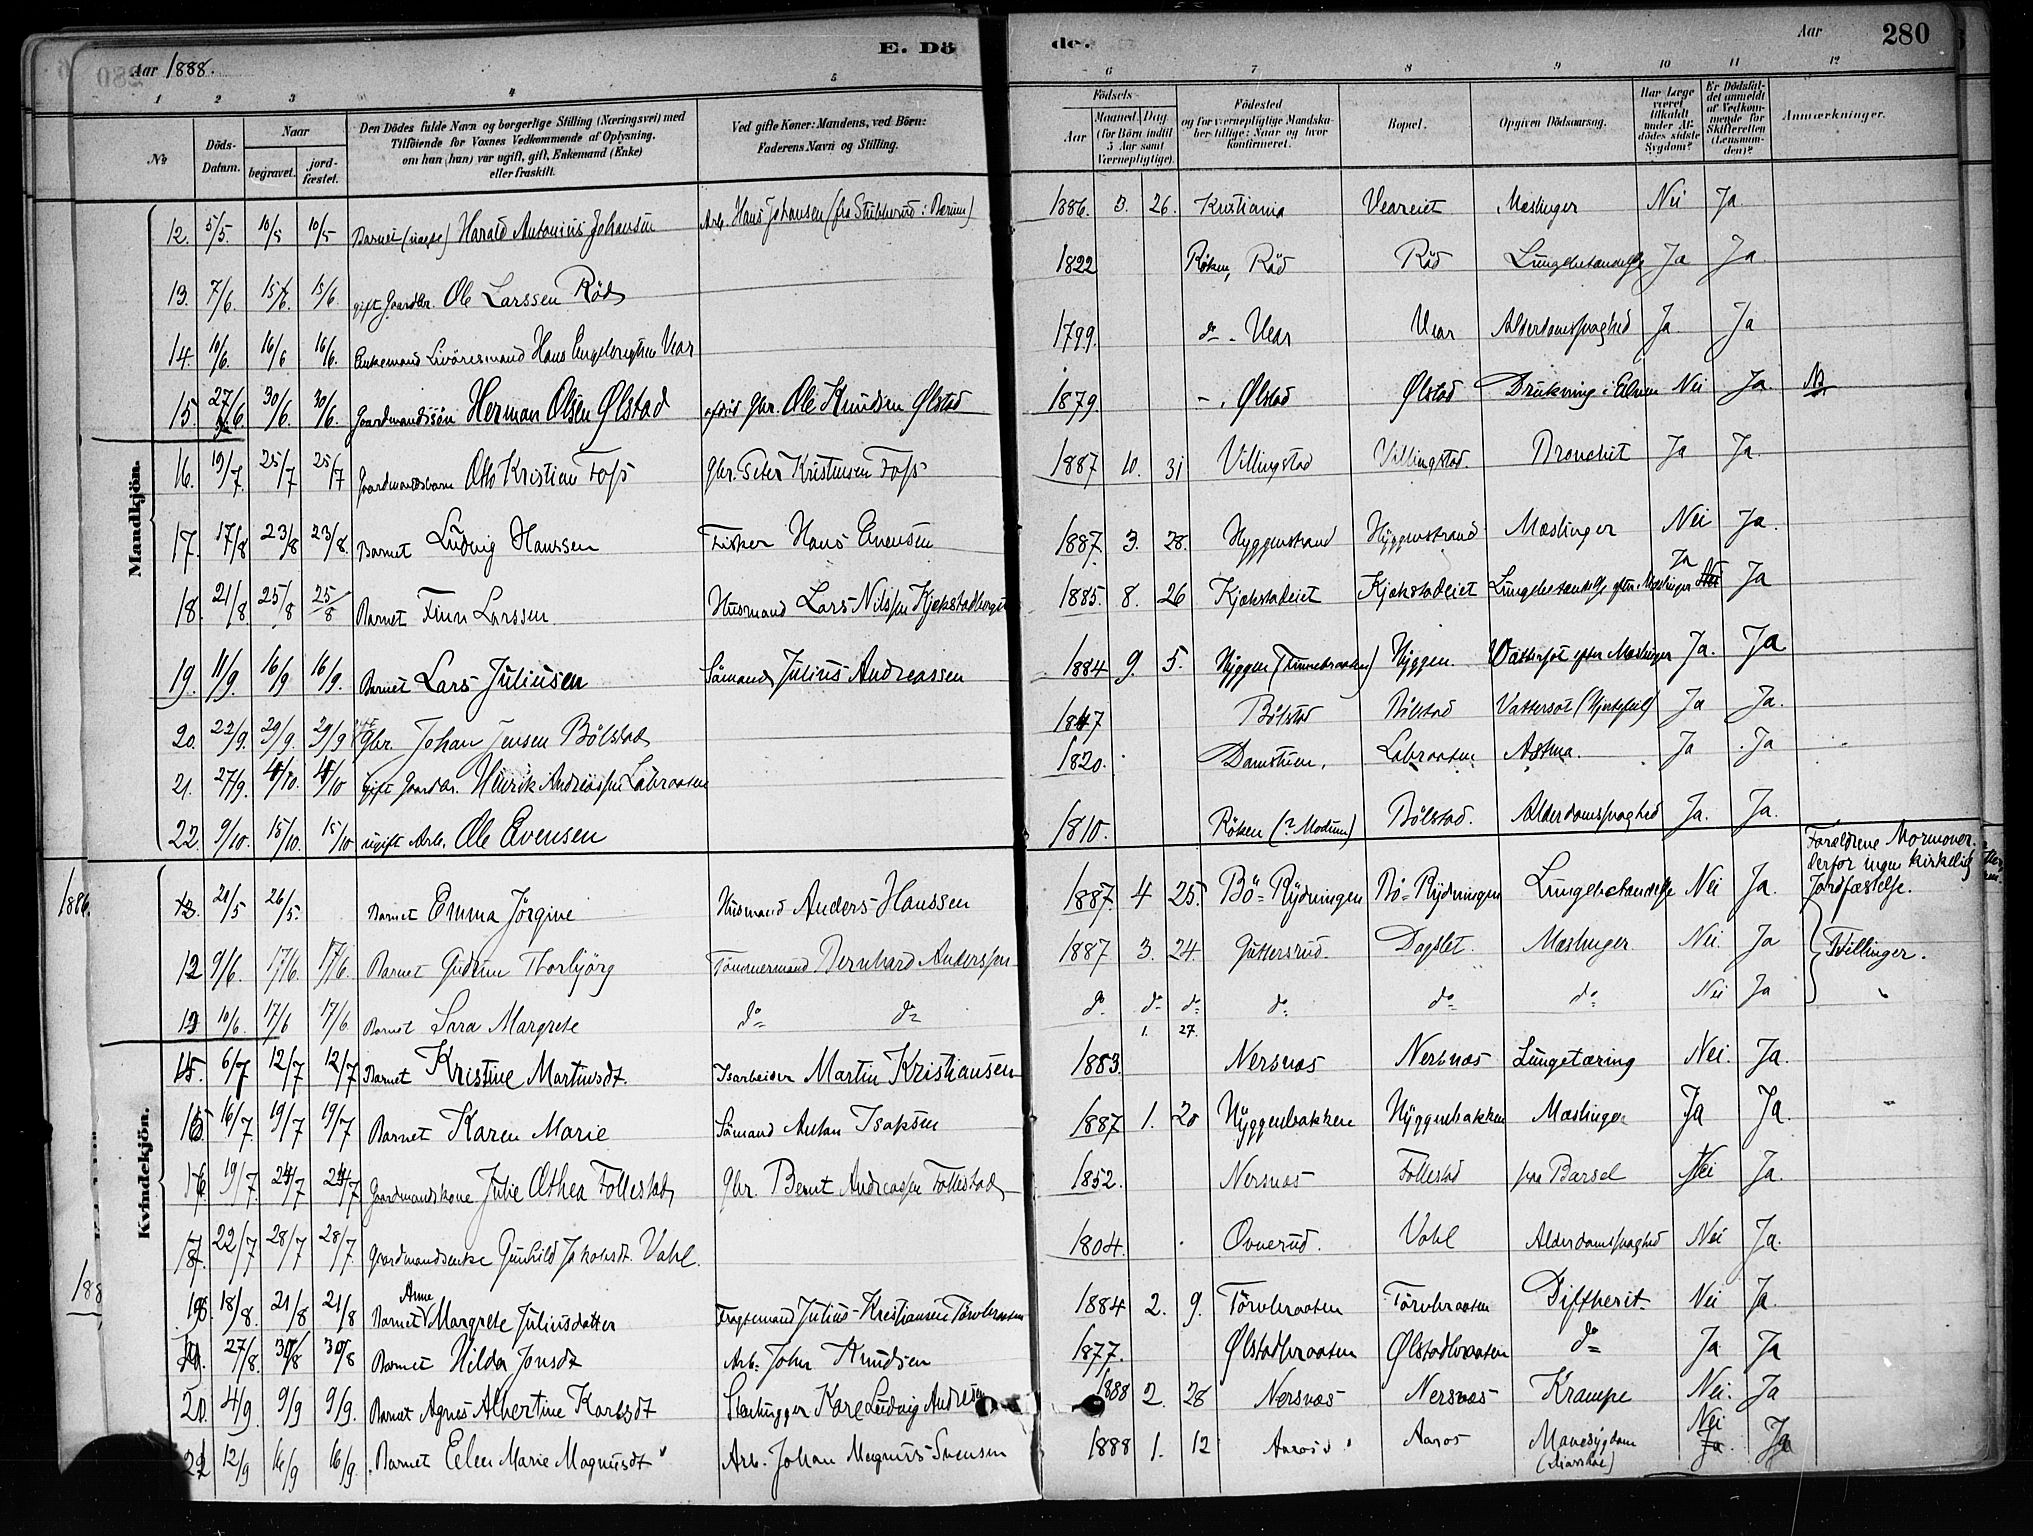 E. Dö
de.
Aar 1888.
Aar
280
1 2 3 4 5 6 7 8 9 10 11 12
No
Döds-Datum.
Naar
begravet.
jord-fæstet.
Den Dödes fulde Navn og borgerlige Stilling (Næringsvei) med Tilföiende for Voxnes Vedkommende af Oplysning, om han (hun) var ugift, gift, Enkemand (Enke) eller fraskilt.
Ved gifte Koner: Mandens, ved Börn: Faderens Navn og Stilling.
Födsels-
Aar
Maaned. Dag
(for Börn indtil 5 Aar samt Værnepligtige).
Födested og for værnepligtige Mandskaber tillige: Naar og hvor konfirmeret.
Bopæl.
Opgiven Dödsaarsag.
Har Læge været tilkaldt under Afdödes sidste Sygdom?
Er Dödsfaldet anmeldt af Vedkommende for Skifteretten (Lensmanden)?
Anmærkninger.
Mandkjön.
12. 5/5. 10/5 10/5 Barnet Harald Antonius Johansen Arb. Hans Johansen (fra Stubberud i Bærum) 1886. 3. 26. Kristiania Veareiet Mæslinger Nei Ja
13. 7/6. 15/6. 15/6. gift Gaardbr. Ole Larssen Röd 1822 Röken, Röd Röd Lungebetændelse Ja Ja.
14. 10/6. 16/6 16/6. Enkemand Livöresmand Hans Engebregtsen Vear 1799. do - Vear Vear Alderdomssvaghed Ja Ja
15. 27/6. 30/6. 30/6. Gaardmandssön Herman Olsen Ølstad afdöd Gbr. Ole Knudsen Ølstad 1879. -, Ølstad Ølstad Drukning i Elven Nei Ja NB.
16. 19/7. 25/7 25/7 Gaardmandsbarn Otto Kristian Foss Gbr. Peter Kristensen Foss 1887 10. 31 Villingstad Villingstad. Bronchit Ja Ja.
17. 17/8 23/8 23/8. Barnet Ludvig Hanssen Fisker Hans Evensen 1887. 3. 28. Hyggenstrand Hyggenstrand Mæslinger Nei Ja.
18. 21/8. 25/8. 25/8 Barnet Finn Larssen. Husmand Lars Nilssen Kjekstad 1885. 8. 26 Kjekstadeiet Kjekstadeiet Lungebetændelse efter Mæslinger Ja Ja
19. 11/9. 16/9 16/9. Barnet Lars Juliusen Sömand Julius Andreassen 1884 9. 5. Hyggen Hyggen. Vattersot efter Mæslinger Ja. Ja
20. 22/9. 29/9. 29/9 Gbr. Johan Jensen Bölstad 1847 Bölstad Bölstad Vattersot (Hjertefeil) Ja Ja.
21. 27/9. 4/10. 4/10 gift Gaardbr. Henrik Andreassen Labraaten 1820. Damstien. Labraaten Astma. Ja Ja
22. 9/10. 15/10. 15/10 ugift Arb. Ole Evensen 1810. Röken (? Modum) Bölstad. Alderdomssvaghed Ja. Ja.
Kvindekjön.
20/5 26/5. Barnet Emma Jörgine Husmand Anders Hanssen 1887. 4 25. Bö-Rydningen Bö-Rydningen Lungebetændelse Nei Ja. Forældrene Mormoner. derfor ingen kirkelig Jordfæstelse.
12 9/6. 17/6. 17/6. Barnet Gudrun Thorbjörg Tömmermand Bernhard Anderssen 1887 3. 24. Guttersrud. Dagslet. Mæslinger Nei. Ja Tvillinger.
13 10/6. 17/6 17/6. Barnet Sara Margrete do do do do do do do do Nei Ja
15. 6/7 12/7 12/7 Barnet Kristine Martinsdt. Isarbeider Martin Kristiansen 1883. 1. 27. Nersnæs Nersnæs Lungetæring Nei. Ja.
15 16/7. 19/7 19/7 Barnet Karen Marie Sömand Anton Isaksen 1887 1. 20 Hyggenbakken Hyggenbakken Mæslinger Ja Ja.
16 19/7. 24/7 24/7 Gaardmandskone Julie Othea Follestad Gbr. Bernt Andreassen Follestad 1852. Nersnæs Follestad paa Barsel Nei Ja.
17. 22/7 28/7 28/7. Gaardmandsenke Gunhild Jakobsdt. Vahl. 1804. Ovnerud. Vahl Alderdomssvaghed Nei Ja.
18 18/8. 21/8 21/8 Barnet Anne Margrete Juliusdatter Fragtemand Julius Kristiansen Törvbraaten 1884 2. 9. Törvbraaten Törvbraaten Diftherit. Nei Ja.
19. 27/8. 30/8 30/8 Barnet Hilda Jonsdt Arb. John Knudsen 1877. Ølstadbraaten Ølstadbraaten do Ja. Ja
20. 4/9. 9/9 9/9. Barnet Agnes Albertine Karlsdt Stenhugger Karl Ludvig Andresen 1888 2. 28 Nersnæs Nersnæs Krampe Nei. Ja
12/9 16/9 16/9. Barnet Ellen Marie Magnusdt Arb. Johan Magnus Svensen 1888 1. 12 Aaros Aaros Mavesygdom (Diarrhoe) Nei Ja
1886.
188